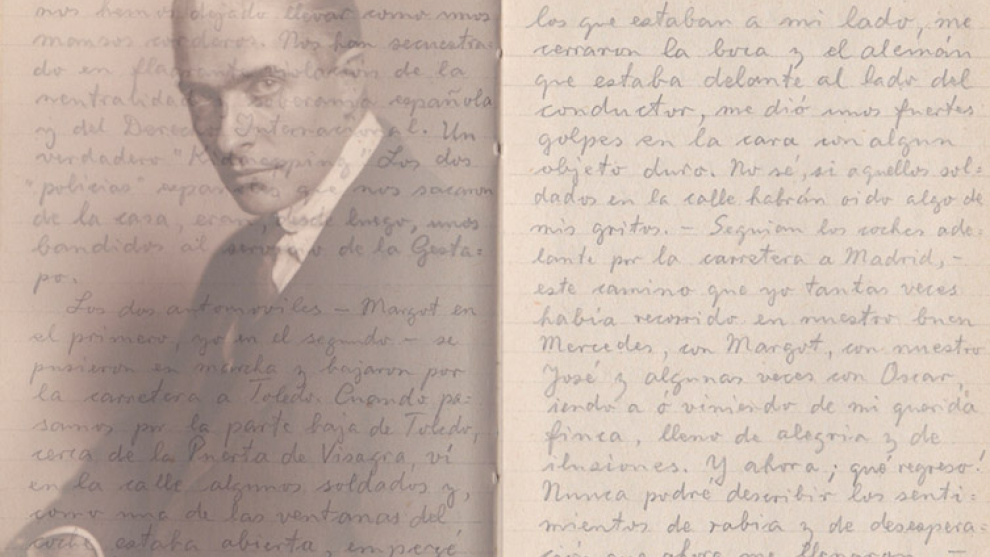 nos hemos dejado llevar como unos
mansos corderos. Nos han secuestra=
do en flagrante violación de la
neutralidad y soberanía española
y del Derecho Internacional. Un
verdadero "Kidnapping" Los dos
"policías" españoles que nos sacaron
de la casa, eran, desde luego, unos
bandidos al servicio de la Gesta=
po.
Los dos automoviles – Margot en
el primero, yo en el segundo – se
pusieron en marcha y bajaron por
la carretera a Toledo. Cuando pa=
samos por la parte baja de Toledo,
cerca de la Puerta de Visagra, ví
en la calle algunos soldados y,
como una de las ventanas del
coche estaba abierta, empecé
los que estaban a mi lado, me
cerraron la boca y el alemán
que estaba delante al lado del
conductor, me dió unos fuertes
golpes en la cara con algun
objeto duro. No sé, si aquellos sol=
dados en la calle habrán oido algo de
mis gritos. – Seguian los coches ade=
lante por la carretera a Madrid, –
este camino que yo tantas veces
había recorrido en nuestro buen
Mercedes, con Margot, con nuestro
José y algunas veces con Oscar,
iendo a ó viniendo de mi querida
finca, lleno de alegria y de
ilusiones. Y ahora ¡ qué regreso!
Nunca podré describir los senti=
mientos de rabia y de desespera=
ción que ahora me